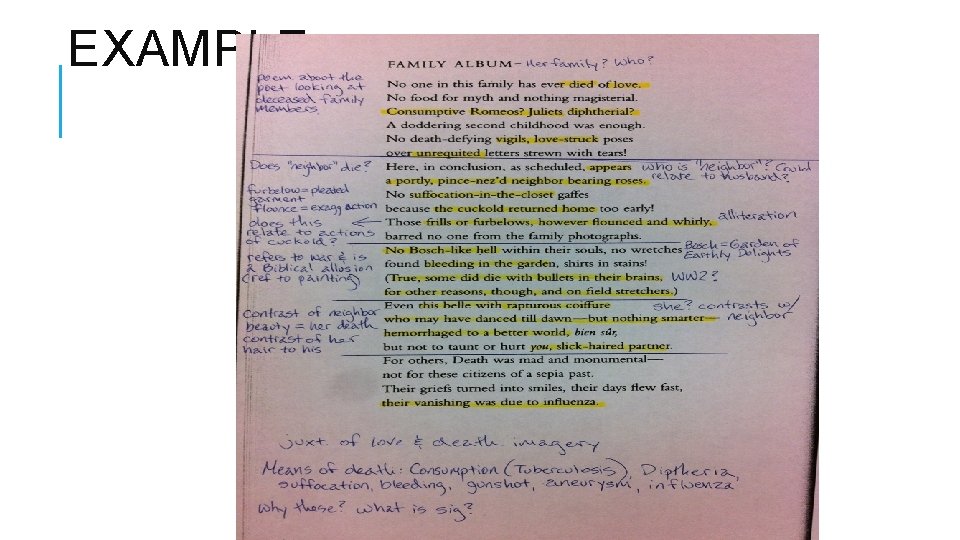 EXAMPLE
FAMILY ALBUM – Her family? Who?
poem about the
poet looking at
deceased family
members.
No one in this family has ever died of love.
No food for myth and nothing magisterial.
Consumptive Romeos? Juliets diphtherial?
A doddering second childhood was enough.
No death-defying vigils, love-struck poses
over unrequited letters strewn with tears!
Does "neighbor" die?
Here, in conclusion, as scheduled, appears
who is "neighbor"? Could
relate to husband?
a portly, pince-nez'd neighbor bearing roses.
furbelow = pleated
garment
flounce = exagg action
does this
relate to actions
of cuckold?
No suffocation-in-the-closet gaffes
because the cuckold returned home too early!
Those frills or furbelows, however flounced and whirly,
alliteration
barred no one from the family photographs.
No Bosch-like hell within their souls, no wretches
Bosch = Garden of
Earthly Delights
refers to war & is
a Biblical allusion
(ref to painting)
found bleeding in the garden, shirts in stains!
(True, some did die with bullets in their brains,
WW2?
for other reasons, though, and on field stretchers.)
Even this belle with rapturous coiffure
she? contrasts w/
neighbor
Contrast of neighbor
beauty = her death
contrast of her
hair to his
who may have danced till dawn—but nothing smarter—
hemorrhaged to a better world, bien sûr,
but not to taunt or hurt you, slick-haired partner.
For others, Death was mad and monumental—
not for these citizens of a sepia past.
Their griefs turned into smiles, their days flew fast,
their vanishing was due to influenza.
juxt. of love & death imagery
Means of death: Consumption (Tuberculosis), Diptheria,
suffocation, bleeding, gunshot, aneurysm, influenza
Why these? What is sig?